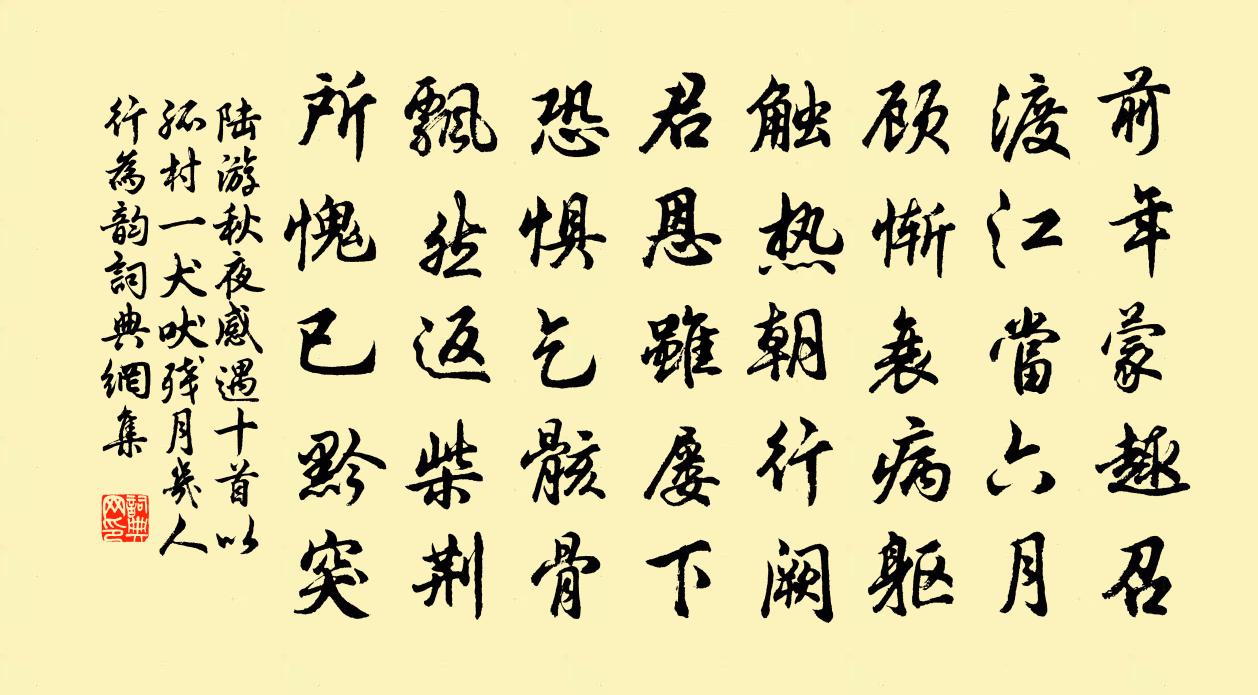 前年蒙趣召
渡江當六月
顾惭衰病躯
触热朝行阙
君恩雖屡下
恐惧乞骸骨
飄然返柴荆
所愧已黔突
陆游秋夜感遇十首以
孤村一犬吠残月幾人
行為韵詞典網集
詞典网印